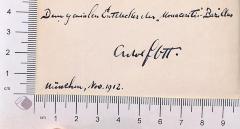 Dem genialen Entdecker des „Monocentri“-Bazillus
Adolf Ott.
München, Nov. 1912.
4
3
2
1
0
cm
1 2 3 4 5 6 7 8 9 10 11